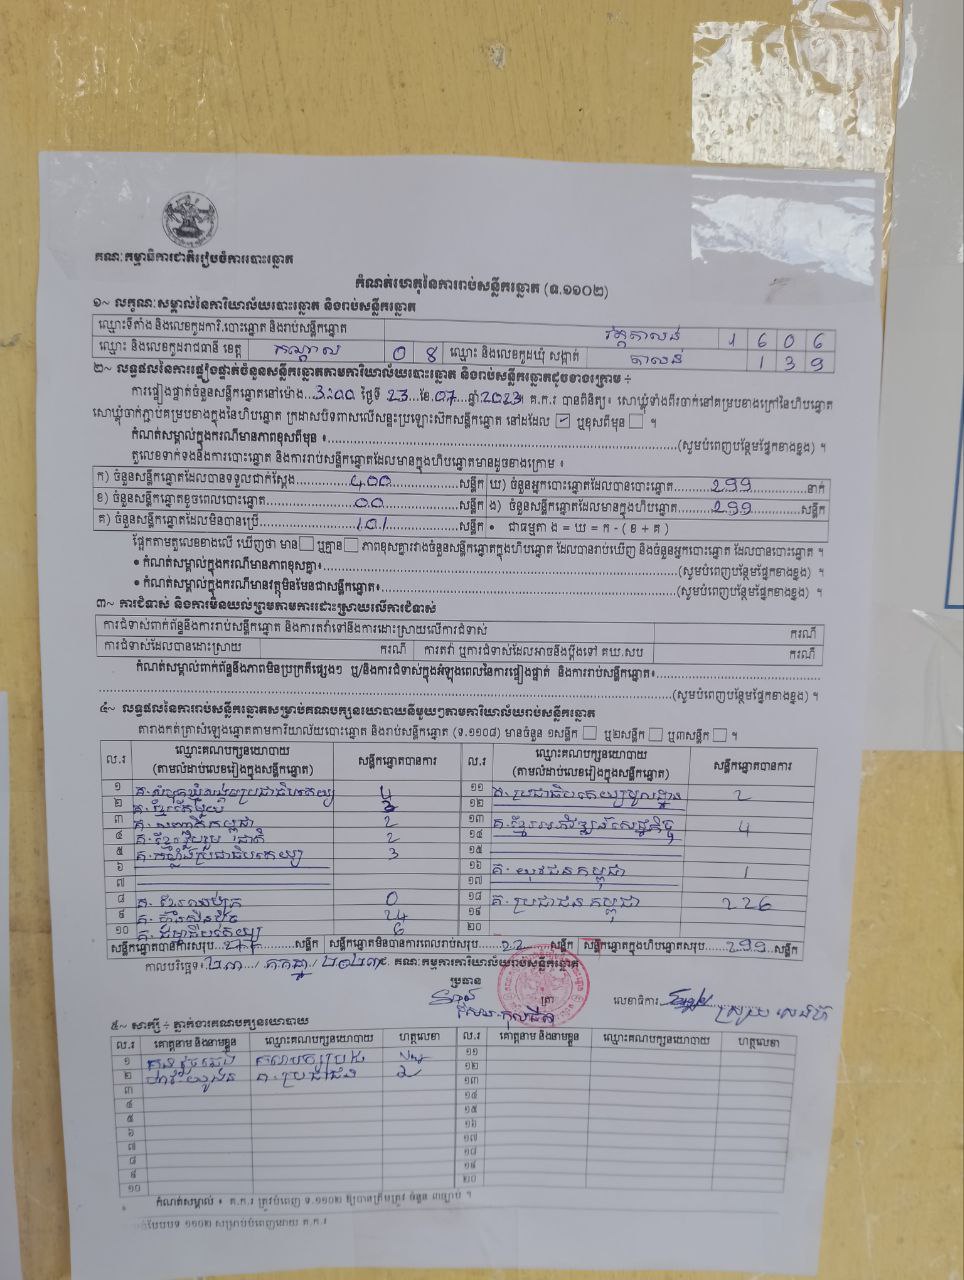 គណៈកម្មាធិការជាតិរៀបចំការបោះឆ្នោត
កំណត់ហេតុនៃការរាប់សន្លឹកឆ្នោត (ទ.១១០២)
១~ លក្ខណៈសម្គាល់នៃការិយាល័យបោះឆ្នោត និងរាប់សន្លឹកឆ្នោត
ឈ្មោះទីតាំង និងលេខកូដការិ.បោះឆ្នោត និងរាប់សន្លឹកឆ្នោត វត្តតាលន់ 1606
ឈ្មោះ និងលេខកូដរាជធានី ខេត្ត កណ្តាល 08 ឈ្មោះ និងលេខកូដឃុំ សង្កាត់ តាលន់ 139
២~ លទ្ធផលនៃការផ្ទៀងផ្ទាត់ចំនួនសន្លឹកឆ្នោតតាមការិយាល័យបោះឆ្នោត និងរាប់សន្លឹកឆ្នោតដូចខាងក្រោម ÷
ការផ្ទៀងផ្ទាត់ចំនួនសន្លឹកឆ្នោតនៅម៉ោង...3:00 ថ្ងៃទី 23 ...ខែ.07...ឆ្នាំ 2023។ គ.ក.រ បានពិនិត្យ៖ សោឃ្លុំទាំងពីរចាក់នៅគម្របខាងក្រៅនៃហិបឆ្នោត
សោឃ្លុំចាក់ភ្ជាប់គម្របខាងក្នុងនៃហិបឆ្នោត ក្រដាសបិទពាសលើសន្ទះប្រឡោះស៊កសន្លឹកឆ្នោត នៅដដែល ✓ ឬខុសពីមុន ។
កំណត់សម្គាល់ក្នុងករណីមានភាពខុសពីមុន ៖...(សូមបំពេញបន្ថែមផ្នែកខាងខ្នង) ។
តួលេខទាក់ទងនឹងការបោះឆ្នោត និងការរាប់សន្លឹកឆ្នោតដែលមានក្នុងហិបឆ្នោតមានដូចខាងក្រោម ៖
ក) ចំនួនសន្លឹកឆ្នោតដែលបានទទួលជាក់ស្តែង...400...សន្លឹក ឃ) ចំនួនអ្នកបោះឆ្នោតដែលបានបោះឆ្នោត...299...នាក់
ខ) ចំនួនសន្លឹកឆ្នោតខូចពេលបោះឆ្នោត...00...សន្លឹក ង) ចំនួនសន្លឹកឆ្នោតដែលមានក្នុងហិបឆ្នោត...299...សន្លឹក
គ) ចំនួនសន្លឹកឆ្នោតដែលមិនបានប្រើ...101...សន្លឹក • ជាធម្មតា ង = ឃ = ក - ( ខ + គ )
ផ្អែកតាមតួលេខខាងលើ ឃើញថា មាន ឬគ្មាន ភាពខុសគ្នារវាងចំនួនសន្លឹកឆ្នោតក្នុងហិបឆ្នោត ដែលបានរាប់ឃើញ និងចំនួនអ្នកបោះឆ្នោត ដែលបានបោះឆ្នោត ។
• កំណត់សម្គាល់ក្នុងករណីមានភាពខុសគ្នា៖...(សូមបំពេញបន្ថែមផ្នែកខាងខ្នង) ។
• កំណត់សម្គាល់ក្នុងករណីមានវត្ថុមិនមែនជាសន្លឹកឆ្នោត៖...(សូមបំពេញបន្ថែមផ្នែកខាងខ្នង) ។
៣~ ការជំទាស់ និងការមិនយល់ព្រមតាមការដោះស្រាយលើការជំទាស់
ការជំទាស់ពាក់ព័ន្ធនឹងការរាប់សន្លឹកឆ្នោត និងការតវ៉ាទៅនឹងការដោះស្រាយលើការជំទាស់ ករណី
ការជំទាស់ដែលបានដោះស្រាយ ករណី ការតវ៉ា ឬការជំទាស់ដែលអាចនឹងប្តឹងទៅ គឃ.សប ករណី
កំណត់សម្គាល់ពាក់ព័ន្ធនឹងភាពមិនប្រក្រតីផ្សេងៗ ឬ/និងការជំទាស់ក្នុងអំឡុងពេលនៃការផ្ទៀងផ្ទាត់ និងការរាប់សន្លឹកឆ្នោត៖...
...(សូមបំពេញបន្ថែមផ្នែកខាងខ្នង) ។
៤~ លទ្ធផលនៃការរាប់សន្លឹកឆ្នោតសម្រាប់គណបក្សនយោបាយនីមួយៗតាមការិយាល័យរាប់សន្លឹកឆ្នោត
តារាងកត់ត្រាសំឡេងឆ្នោតតាមការិយាល័យបោះឆ្នោត និងរាប់សន្លឹកឆ្នោត (ទ.១១០៨) មានចំនួន ១សន្លឹក ឬ២សន្លឹក ឬ៣សន្លឹក ។
ល.រ ឈ្មោះគណបក្សនយោបាយ (តាមលំដាប់លេខរៀងក្នុងសន្លឹកឆ្នោត) សន្លឹកឆ្នោតបានការ ល.រ ឈ្មោះគណបក្សនយោបាយ (តាមលំដាប់លេខរៀងក្នុងសន្លឹកឆ្នោត) សន្លឹកឆ្នោតបានការ
១ 4 ១១ គ.ប្រជាធិបតេយ្យមូលដ្ឋាន 2
២ គ.ខ្មែរតែមួយ ១២
៣ គ.សញ្ជាតិកម្ពុជា 2 ១៣ គ.ខ្មែរអភិវឌ្ឍន៍សេដ្ឋកិច្ច 4
៤ គ.ខ្មែររួបរួមជាតិ 2 ១៤
៥ គ.កម្លាំងប្រជាធិបតេយ្យ 3 ១៥
៦ ១៦ គ.យុវជនកម្ពុជា 1
៧ ១៧
៨ 0 ១៨ គ.ប្រជាជនកម្ពុជា 226
៩ គ.ហ្វ៊ុនស៊ិនប៉ិច 24 ១៩
១០ 6 ២០
សន្លឹកឆ្នោតបានការសរុប...សន្លឹក សន្លឹកឆ្នោតមិនបានការពេលរាប់សរុប...22...សន្លឹក សន្លឹកឆ្នោតក្នុងហិបឆ្នោតសរុប...299...សន្លឹក
កាលបរិច្ឆេទ៖ ២៣ / កក្កដា / ២០២៣ ជ. គណៈកម្មការការិយាល័យរាប់សន្លឹកឆ្នោត
ប្រធាន
ត្រា លេខាធិការ
៥~ សាក្សី ÷ ភ្នាក់ងារគណបក្សនយោបាយ
ល.រ គោត្តនាម និងនាមខ្លួន ឈ្មោះគណបក្សនយោបាយ ហត្ថលេខា ល.រ គោត្តនាម និងនាមខ្លួន ឈ្មោះគណបក្សនយោបាយ ហត្ថលេខា
១ ១១
២ គ.ប្រជាជន ១២
៣ ១៣
៤ ១៤
៥ ១៥
៦ ១៦
៧ ១៧
៨ ១៨
៩ ១៩
១០ ២០
កំណត់សម្គាល់ ៖ គ.ក.រ ត្រូវបំពេញ ទ.១១០២ ឱ្យបានត្រឹមត្រូវ ចំនួន ៣ច្បាប់ ។
បែបបទ ១១០២ សម្រាប់បំពេញដោយ គ.ក.រ